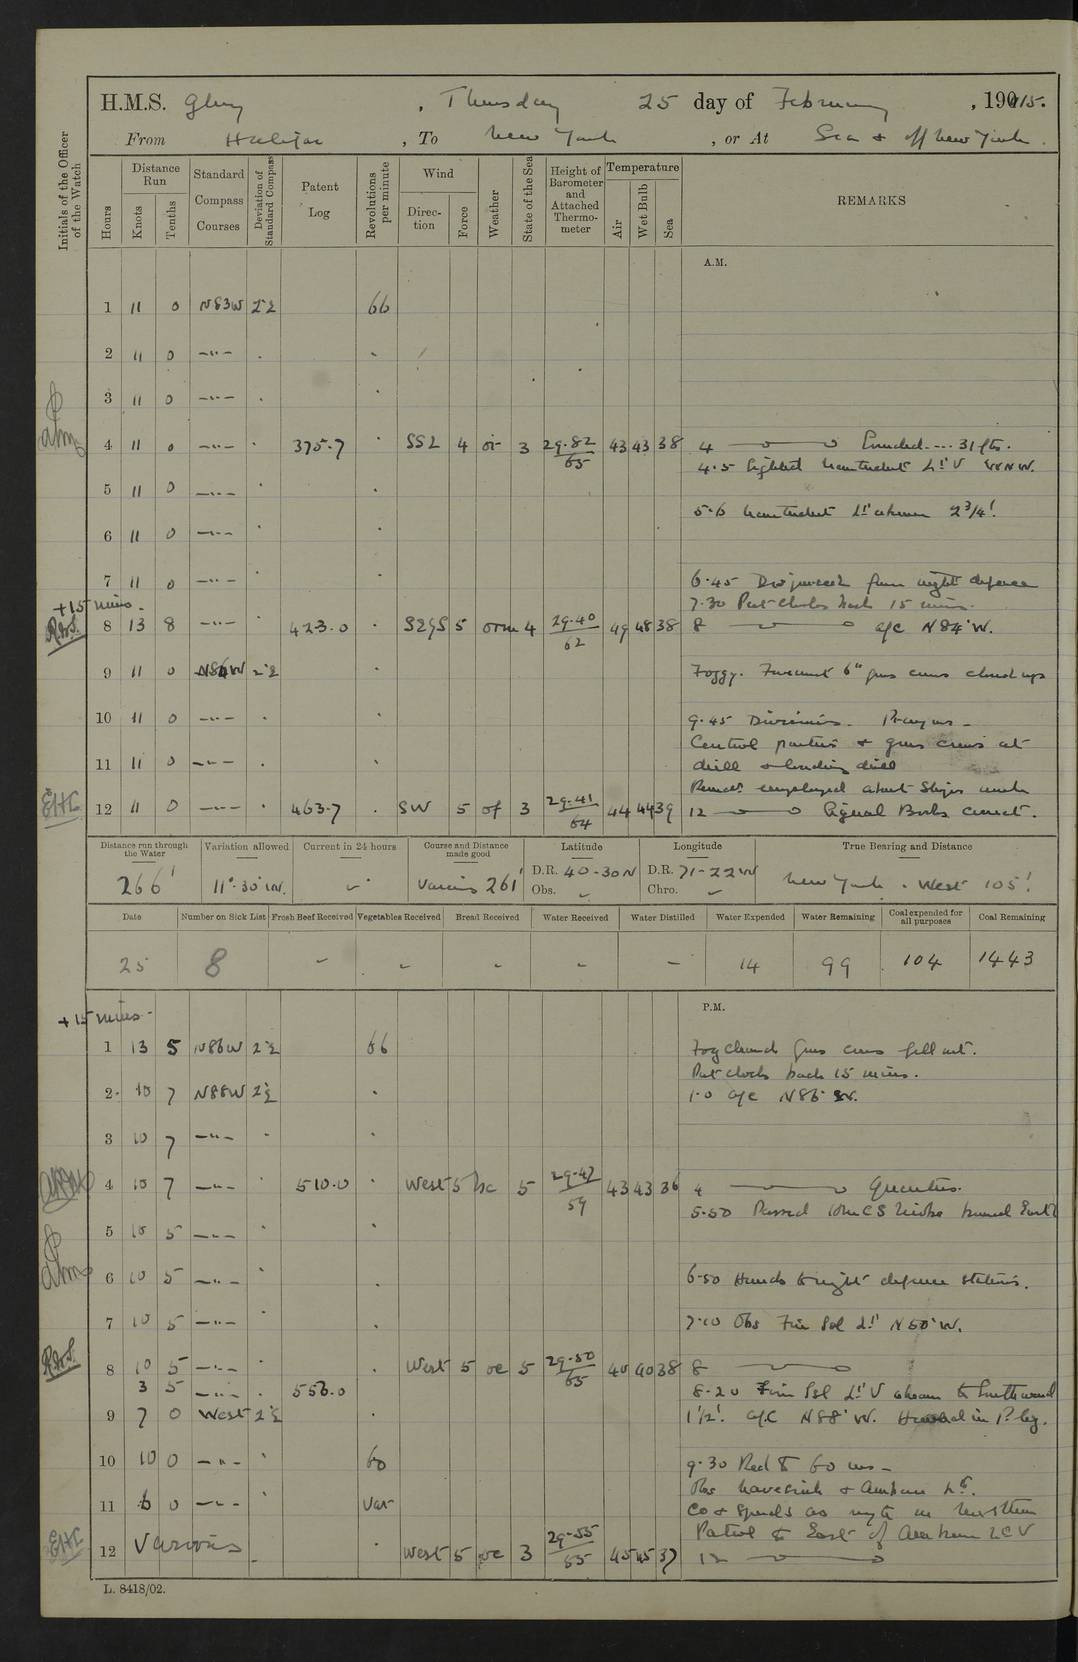 H.M.S. Glory, Thursday 25 day of February, 1915.
From Halifax, To New York, or At Sea & off New York.
Initials of the Officer of the Watch
Hours
Distance Run
Knots
Tenths
Standard Compass Courses
Deviation of Standard Compass
Patent Log
Revolutions per minute
Wind
Direction
Force
Weather
State of the Sea
Height of Barometer and Attached Thermometer
Temperature
Air
Wet Bulb
Sea
REMARKS
A.M.
1 11 0 N83W 2½ 66
2 11 0 —"— . .
3 11 0 —"— . .
4 11 0 —"— . 375.7 . 4 or 3 29.82/65 43 43 38 4 31 fts.
4.5 Sighted Nantucket Lt V WNW.
5 11 0 —"— .
5.6 Nantucket Lt abeam 2 3/4'.
6 11 0 —"— . .
7 11 0 —"— . .
6.45 from night defence
+15 mins.
7.30 Put clocks back 15 mins.
8 13 8 —"— . 423.0 . SSyS 5 orm 4 29.40/62 49 48 38 8 a/c N84°W.
9 11 0 N84W 2½ .
Foggy. Foremost 6" guns crews closed up
10 11 0 —"— . .
9.45 Divisions. Prayers -
Control parties & guns crews at
11 11 0 —"— . .
drill & loading drill
employed about Ships work
12 11 0 —"— . 463.7 . SW 5 of 3 29.41/64 44 44 39 12 Signal Books correct.
Distance run through the Water 266'
Variation allowed 11°.30'W.
Current in 24 hours
Course and Distance made good Various 261'
Latitude D.R. 40-30N Obs. -
Longitude D.R. 71-22W Chro. -
True Bearing and Distance New York. West 105'.
Date
Number on Sick List
Fresh Beef Received
Vegetables Received
Bread Received
Water Received
Water Distilled
Water Expended
Water Remaining
Coal expended for all purposes
Coal Remaining
25 8 - - - - - 14 99 104 1443
P.M.
+15 mins.
1 13 5 N86W 2½ 66
Fog cleared Guns crews fell out.
Put clocks back 15 mins.
2 10 7 N88W 2½ .
1.0 a/c N86°W.
3 10 7 —"— . .
4 10 7 —"— . 510.0 . West 5 bc 5 29.47/59 43 43 36 4 Quarters.
5.50 Passed
5 10 5 —"— .
6 10 5 —"— . .
6.50 Hands to night defence stations.
7 10 5 —"— . .
7.10 Obs Fire Isl Lt N50°W.
8 10 5 —"— . West 5 oc 5 29.50/65 40 40 38 8
3 5 —"— . 556.0
8.20 Fire Isl Lt V abeam to Southward
9 7 0 West 2½ .
1½'. a/c N88°W. Hauled in P. log.
10 10 0 —"— . 60
9.30 Red to 60 revs -
Obs Navesink & Ambrose Lts.
11 6 0 —"— Var
Co & speeds as req in Northern
Patrol to East of Ambrose L V
12 Various . West 5 oc 3 29.55/55 45 45 37 12
L. 8418/02.